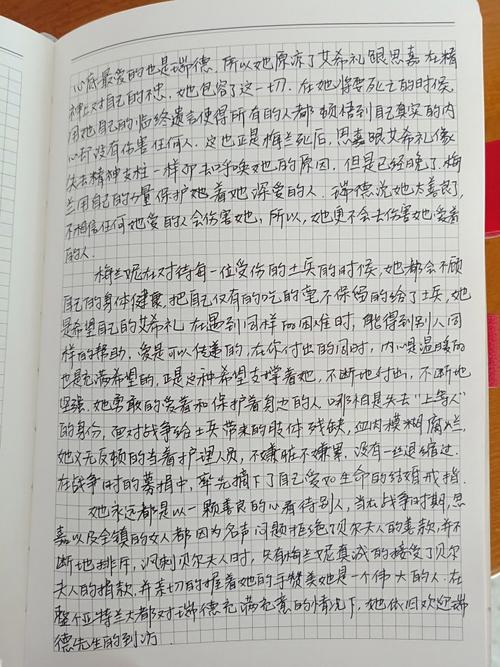 心底最爱的也是瑞德，所以她原谅了艾希礼跟思嘉在精
神上对自己的不忠，她包容了这一切。在她将要死亡的时候，
用她自己的临终遗言使得所有的人都顿悟到自己真实的内
心却没有伤害任何人。这也正是梅兰死后，思嘉跟艾希礼像
失去精神支柱一样呼唤她的原因。但是已经晚了，梅
兰用自己的力量保护她着她深爱的人。瑞德说她太善良了，
不相信任何她爱的人会伤害她，所以，她更不会去伤害她爱着
的人。
梅兰妮在对待每一位受伤的士兵的时候，她都会不顾
自己的身体健康，把自己仅有的吃的毫不保留的给了士兵，她
是希望自己的艾希礼在遇到同样的困难时，能得到别人同
样的帮助，爱是可以传递的，在你付出的同时，内心是温暖的
也是充满希望的，正是这种希望支撑着她，不断地付出，不断地
坚强。她勇敢的爱着和保护着身边的人，哪怕是失去"上等人"
的身份，面对战争给士兵带来的肢体残缺，血肉模糊腐烂，
她义无反顾的当着护理人员，不嫌脏不嫌累，没有一丝退缩过。
在战争时的募捐中，率先摘下了自己爱如生命的结婚戒指。
她永远都是以一颗善良的心看待别人，当在战争时期，思
嘉以及全镇的女人都因为名声问题拒绝了贝尔夫人的善款，并不
断地排斥，讽刺贝尔夫人时，只有梅兰妮真诚的接受了贝尔
夫人的捐款，并亲切的握着她的手赞美她是一个伟大的人。在
整个亚特兰大都对瑞德充满敌意的情况下，她依旧欢迎瑞
德先生的到访